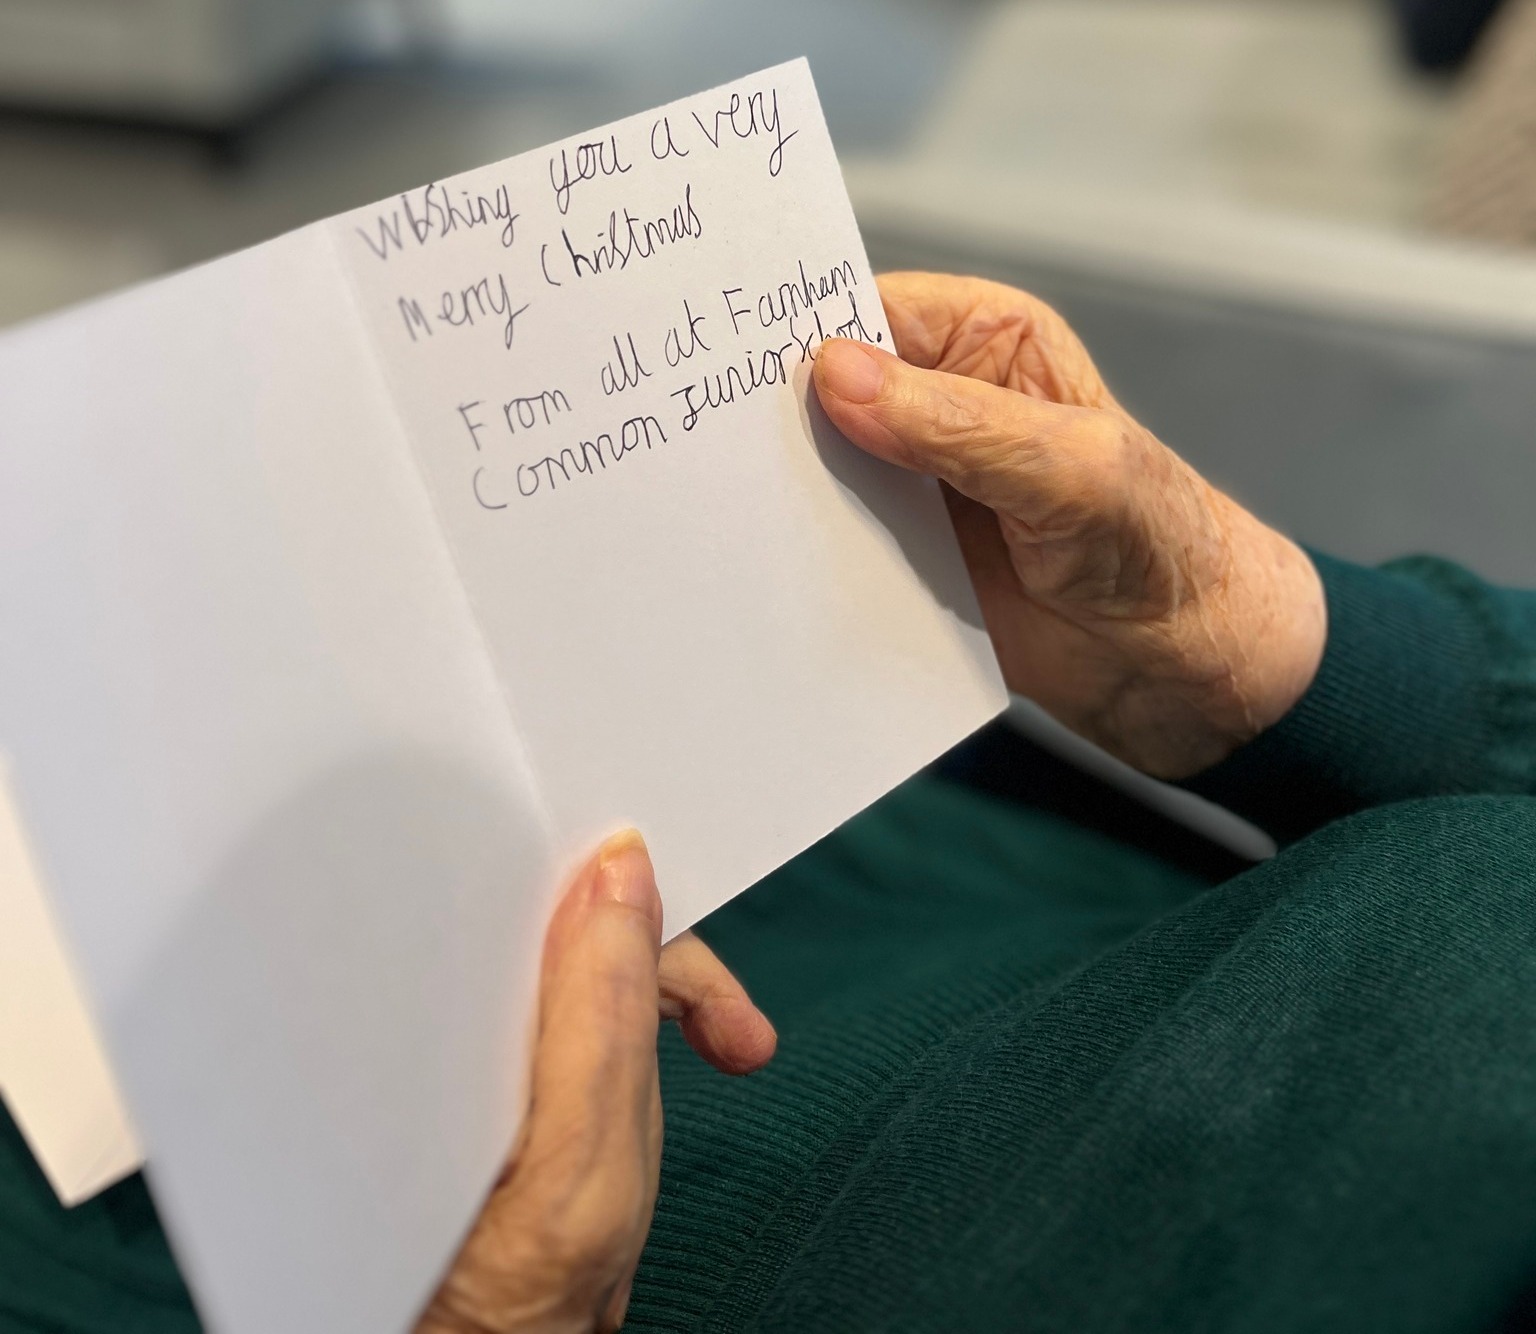 Wishing you a very
Merry Christmas
From all at Farnham
Common Junior School.